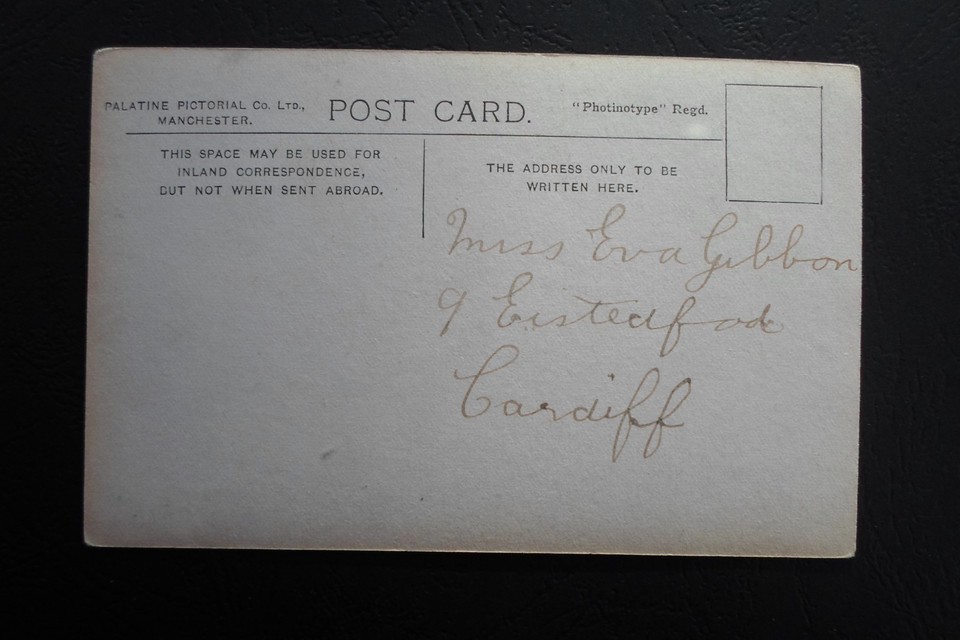 PALATINE PICTORIAL Co. LTD.,
MANCHESTER.
POST CARD.
"Photinotype" Regd.
THIS SPACE MAY BE USED FOR
INLAND CORRESPONDENCE,
BUT NOT WHEN SENT ABROAD.
THE ADDRESS ONLY TO BE
WRITTEN HERE.
Miss Eva Gibbon
9 Eistedfod
Cardiff